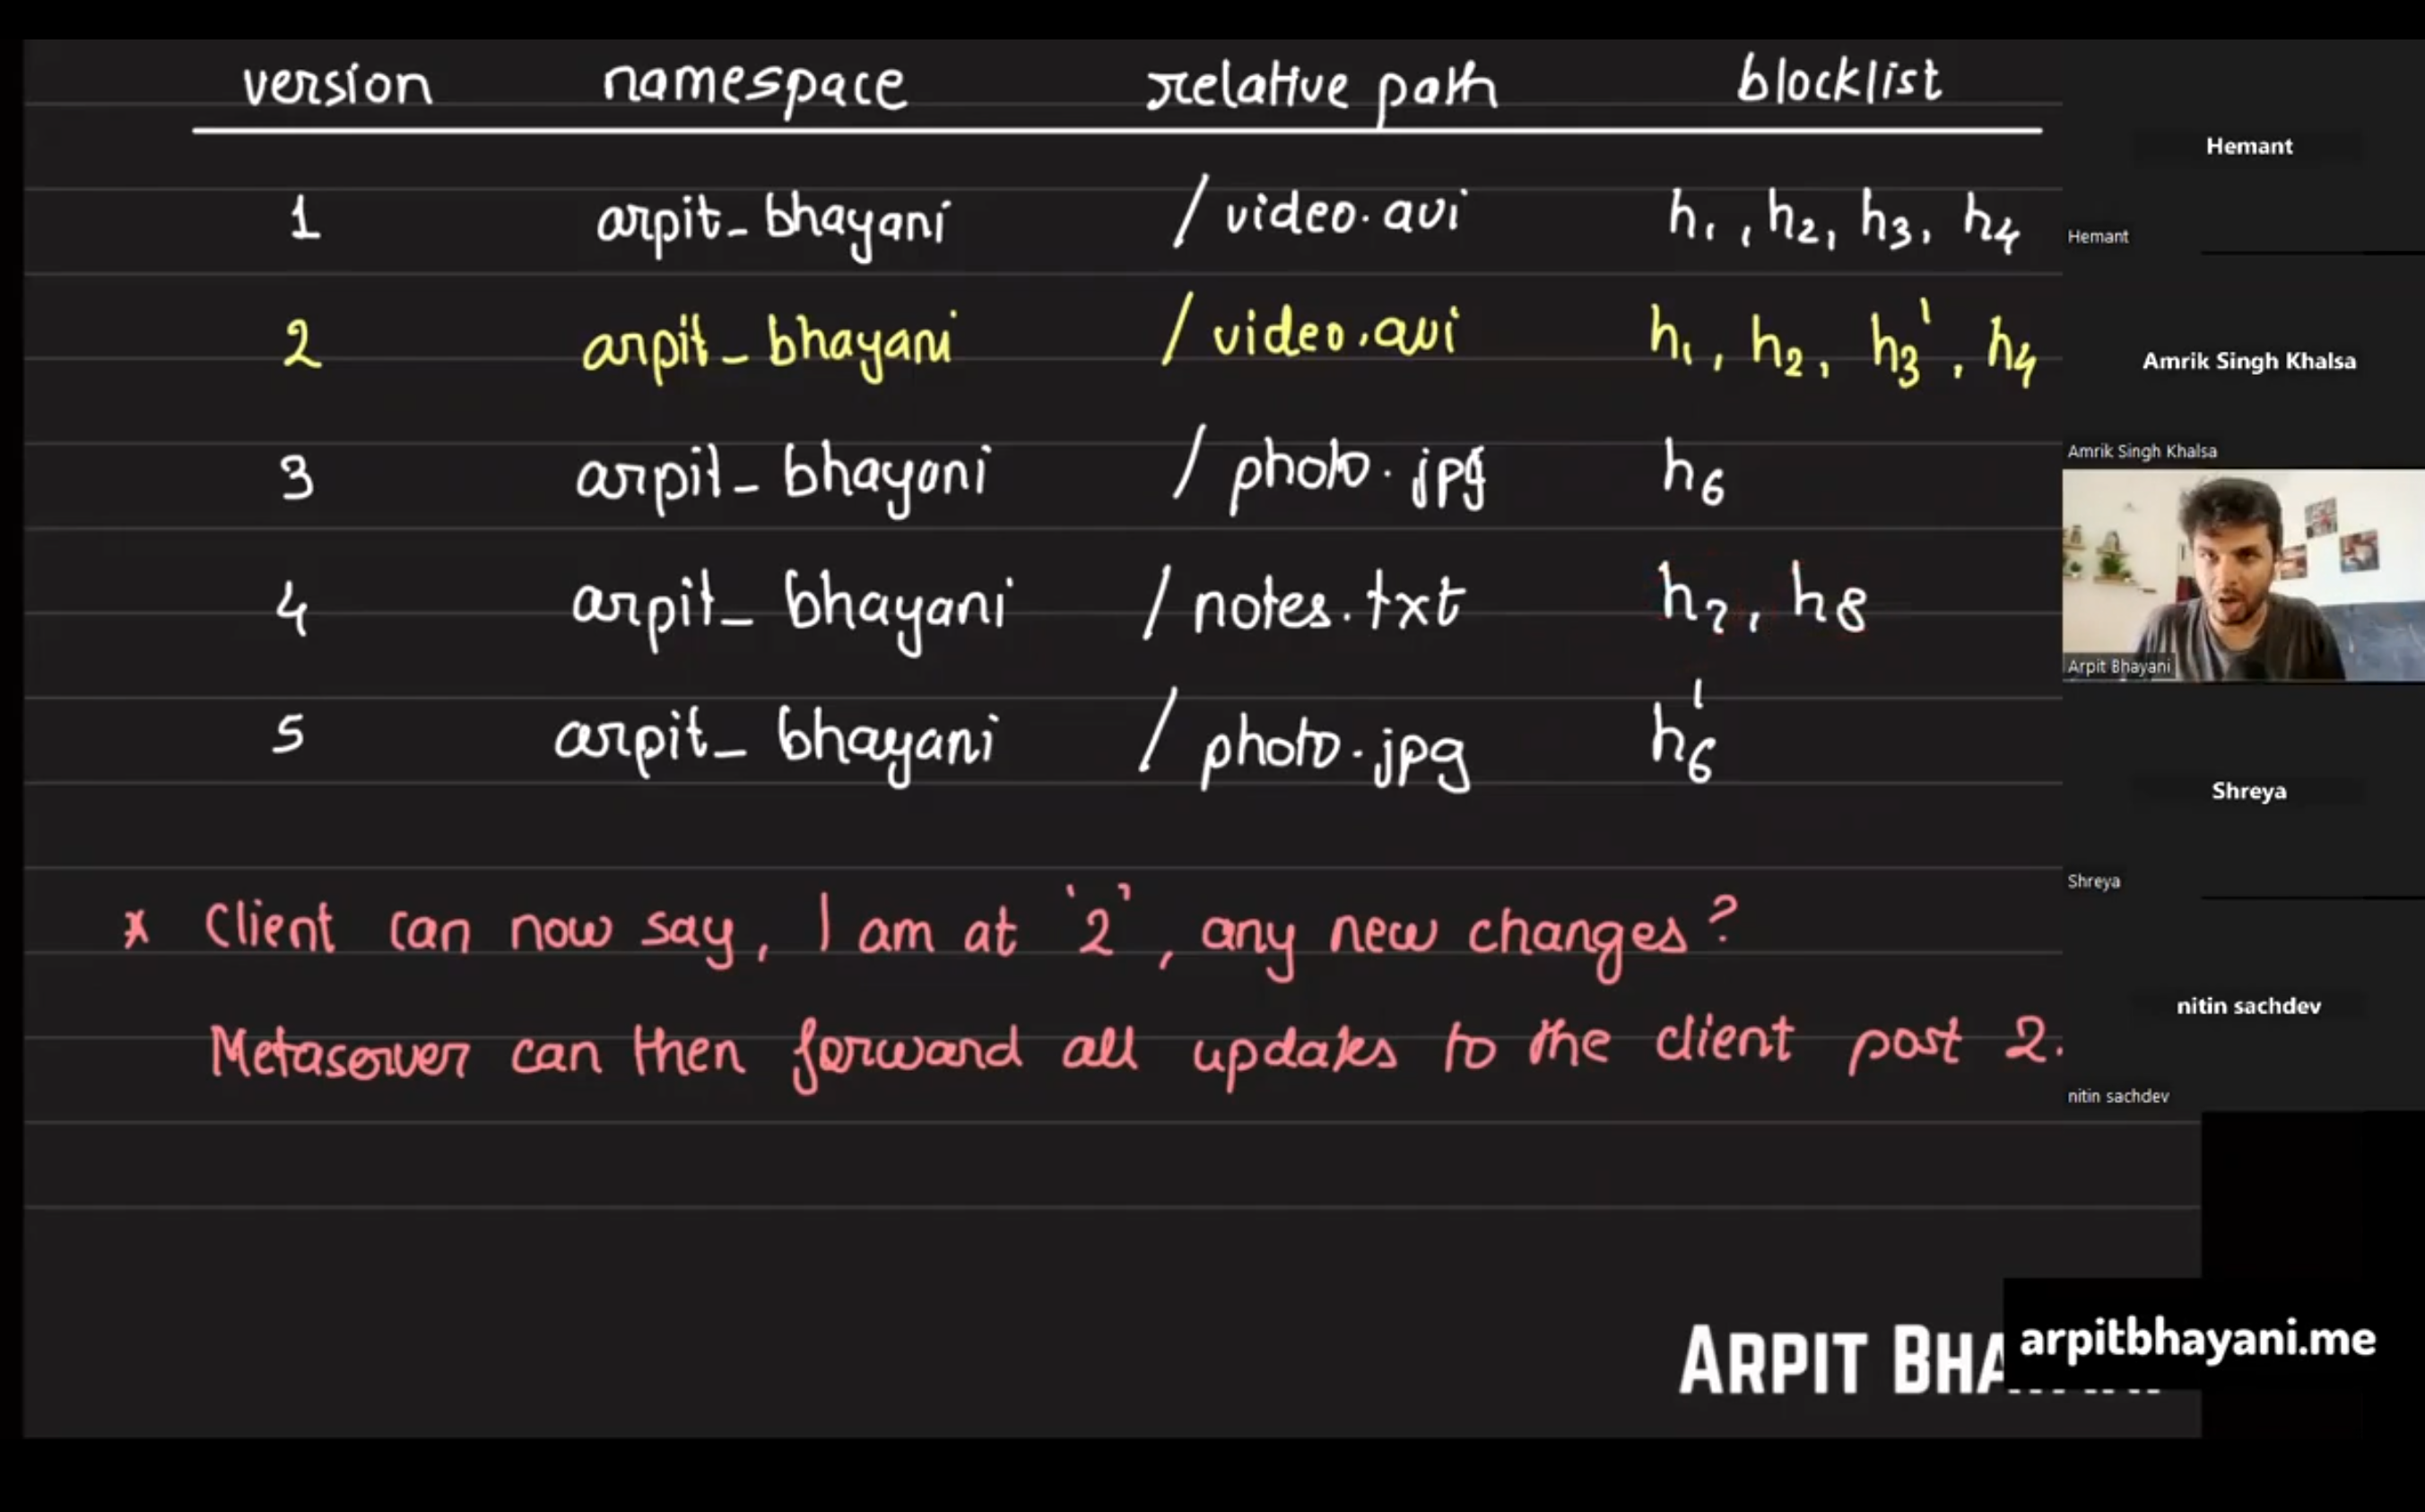 version namespace relative path blocklist
1 arpit_bhayani /video.avi h₁, h₂, h₃, h₄
2 arpit_bhayani /video.avi h₁, h₂, h₃', h₄
3 arpit_bhayani /photo.jpg h₆
4 arpit_bhayani /notes.txt h₇, h₈
5 arpit_bhayani /photo.jpg h₆'
* Client can now say, I am at '2', any new changes?
Metaserver can then forward all updates to the client post 2.
Hemant
Hemant
Amrik Singh Khalsa
Amrik Singh Khalsa
Arpit Bhayani
Shreya
Shreya
nitin sachdev
nitin sachdev
ARPIT BHA
arpitbhayani.me